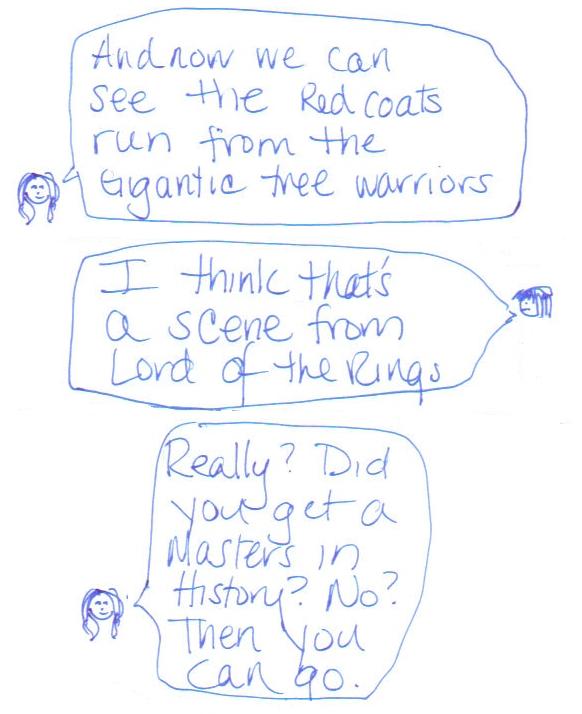 And now we can
see the Redcoats
run from the
Gigantic tree warriors
I think that's
a scene from
Lord of the Rings
Really? Did
you get a
Masters in
History? No?
Then you
can go.